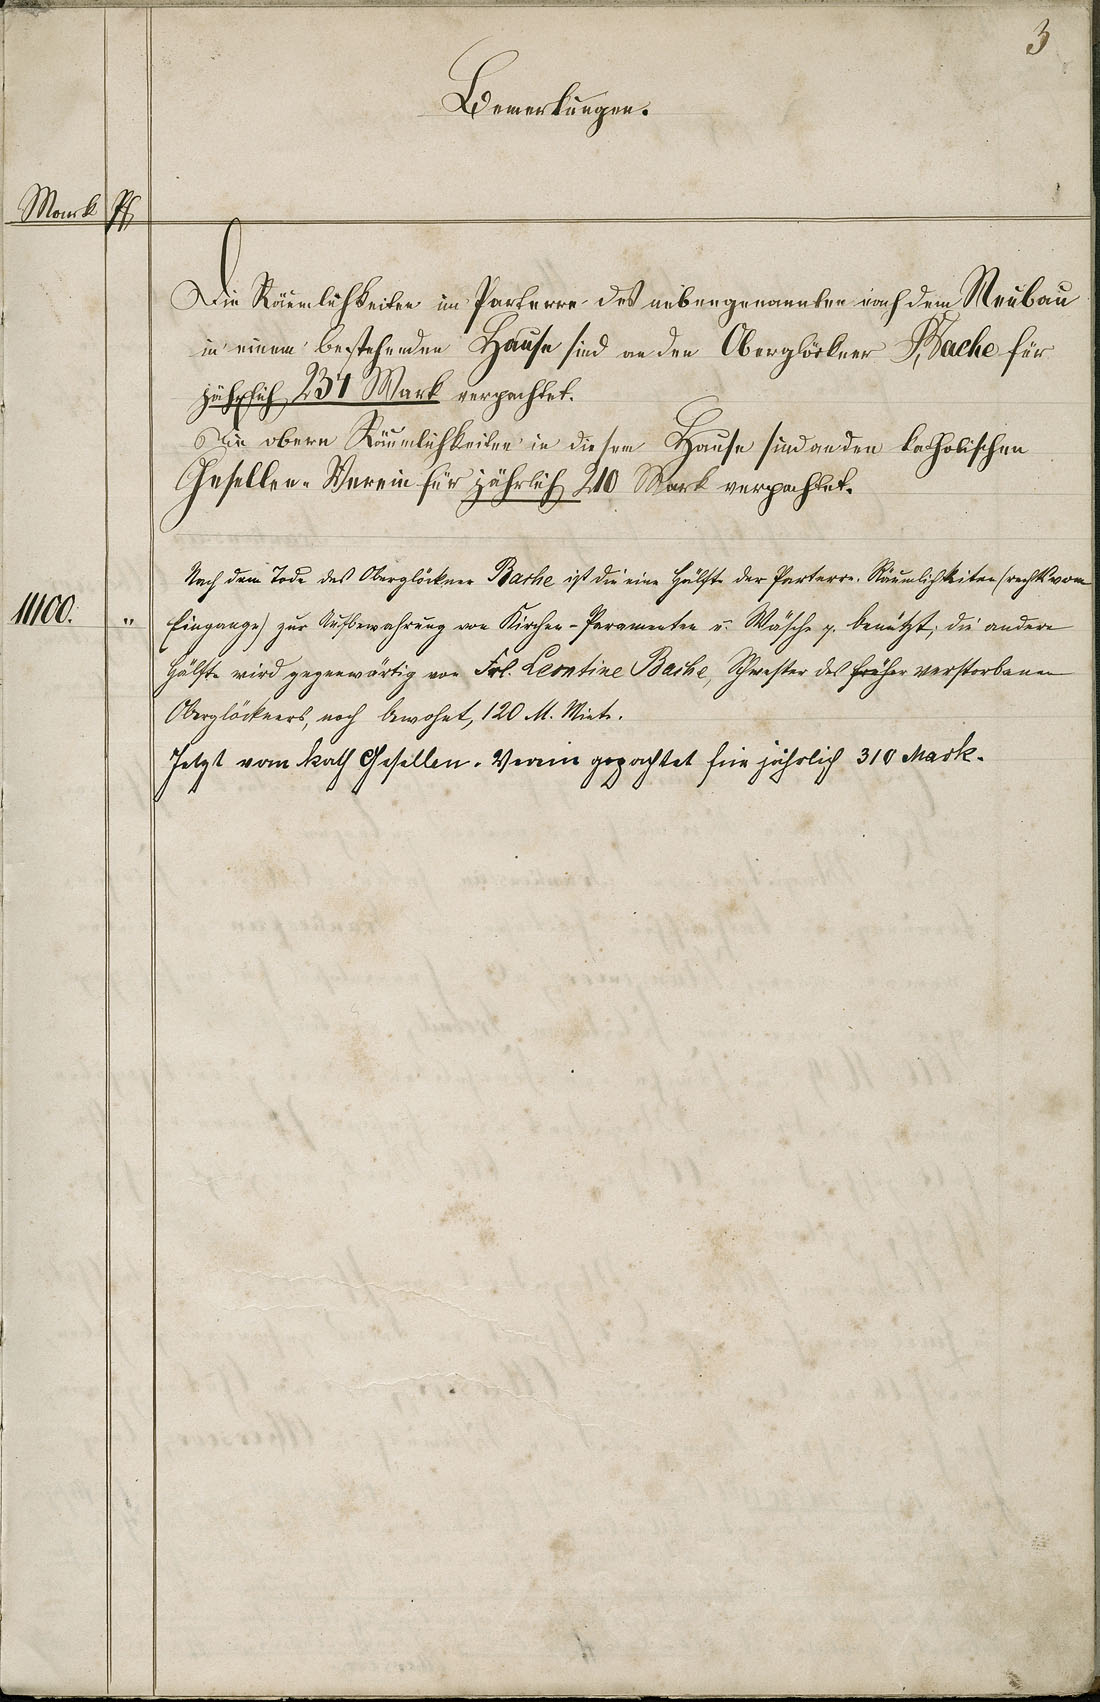 3
Bemerkungen.
Mark Pf
Die Räumlichkeiten im Parterre des nebengenannten nach dem Neubau
in einem bestehenden Hause sind an den Oberglöckner Bache für
jährlich 231 Mark verpachtet.
Die obern Räumlichkeiten in diesem Hause sind an den katholischen
Gesellen-Verein für jährlich 210 Mark verpachtet.
Nach dem Tode des Oberglöckner Bache ist die eine Hälfte der Parterre-Räumlichkeiten (rechts vom
11100. "
Eingange) zur Aufbewahrung von Kirchen-Paramenten u. Wäsche p. benützt, die andere
Hälfte wird gegenwärtig von Frl. Leontine Bache, Schwester des früher verstorbenen
Oberglöckners, noch bewohnt, 120 M. Miete.
Jetzt vom kath Gesellen-Verein gepachtet für jährlich 310 Mark.